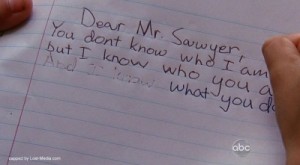 Dear Mr. Sawyer,
You dont know who I am
but I know who you a
And I know what you d
abc
capped by Lost-Media.com